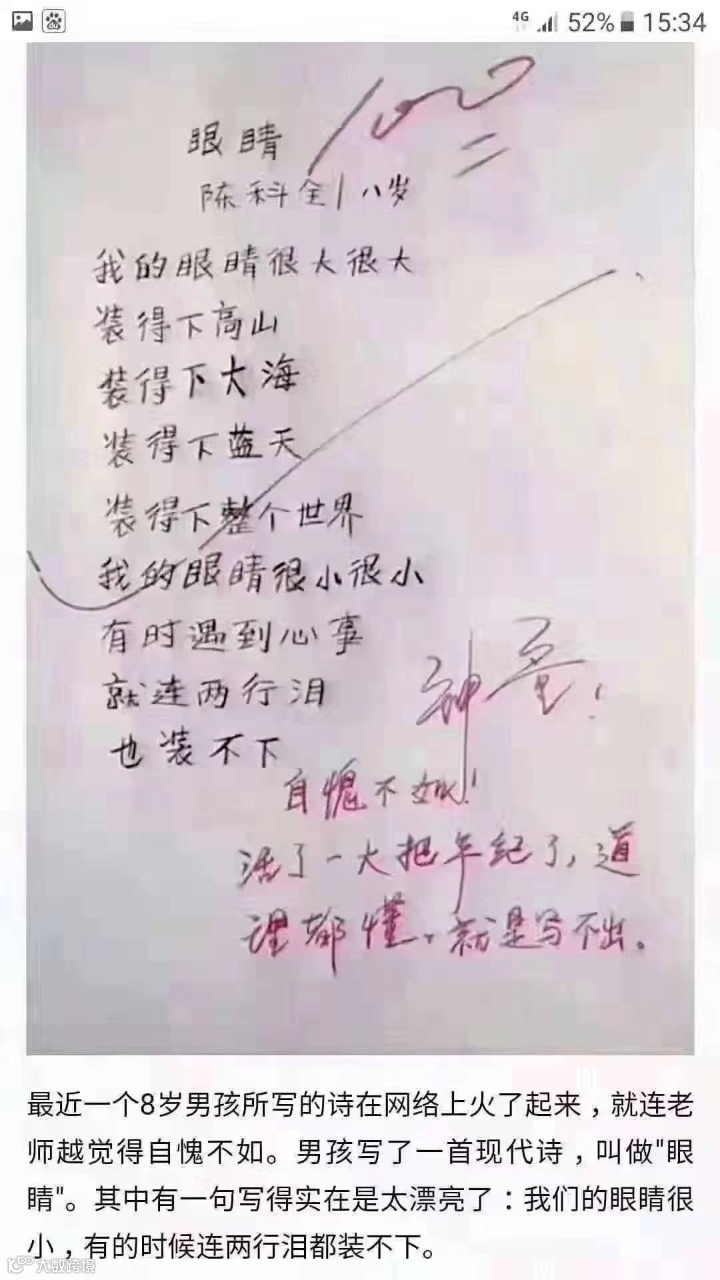 4G 52% 15:34
100
眼睛
陈科全 八岁
我的眼睛很大很大
装得下高山
装得下大海
装得下蓝天
装得下整个世界
我的眼睛很小很小
有时遇到心事
就连两行泪
也装不下
神童!
自愧不如!
活了一大把年纪了,道
理都懂,就是写不出。
最近一个8岁男孩所写的诗在网络上火了起来，就连老
师越觉得自愧不如。男孩写了一首现代诗，叫做"眼
睛"。其中有一句写得实在是太漂亮了：我们的眼睛很
小，有的时候连两行泪都装不下。
大数跨境